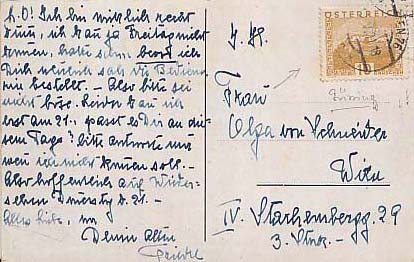 L. O! Ich bin wirklich recht
dumm, ich kann ja Freitag nicht
kommen, hatte schon bevor ich
Dich neulich sah die
bestellt. – Also bitte sei
nicht böse. Leider kann ich
erst am 21., passt es Dir an die-
sem Tage? bitte antworte nur
wenn ich nicht kommen soll. –
Also hoffentlich auf Wieder-
sehen Dienstag d. 21. –
Alles Liebe, von
Deiner alten
I. H.
Frau
Olga von Schneider
Wien
IV. Starhembergg. 29
3. Stock. –
ÖSTERREICH
10
WIEN 76